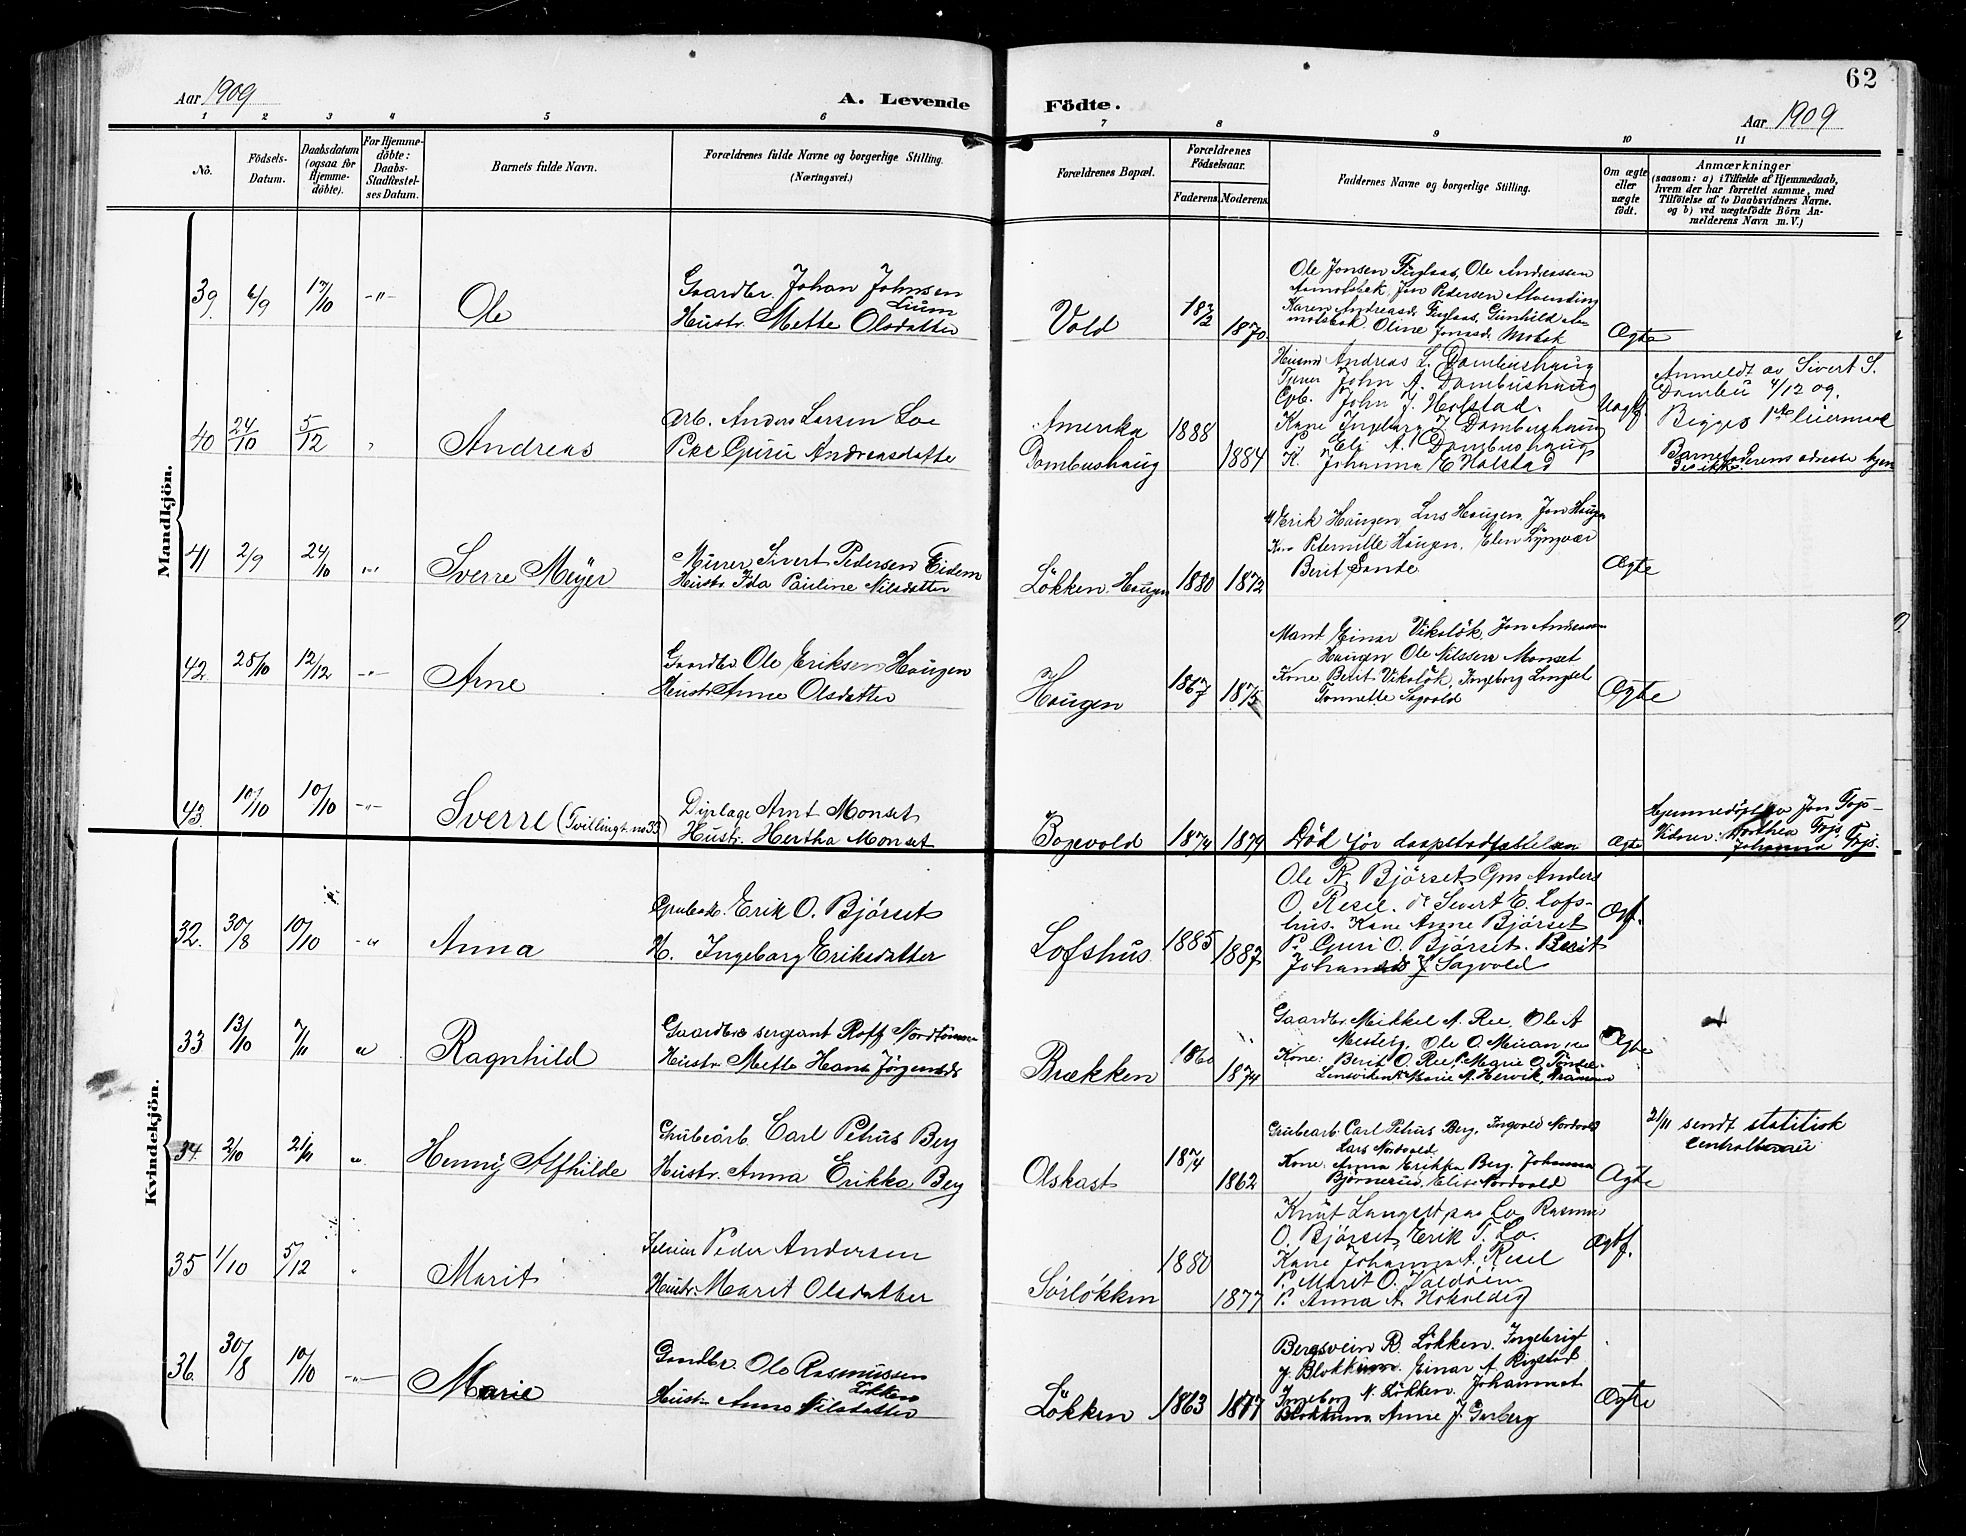 62
Aar 1909
A. Levende Födte.
Aar 1909
1 2 3 4 5 6 7 8 9 10 11
No.
Födsels-Datum.
Daabsdatum (ogsaa for Hjemmedöbte).
For Hjemmedöbte: Daabs-Stadfæstelses Datum.
Barnets fulde Navn.
Forældrenes fulde Navne og borgerlige Stilling.
(Næringsvei.)
Forældrenes Bopæl.
Forældrenes Födselsaar.
Faderens. Moderens.
Faddernes Navne og borgerlige Stilling.
Om ægte eller uægte födt.
Anmærkninger
(saasom: a) i Tilfælde af Hjemmedaab, hvem der har forrettet samme, med Tilföielse af to Daabsvidners Navne. og b) ved uægtefödte Börn Anmelderens Navn m. V.)
Mandkjön.
39. 6/9 17/10 -"- Ole
Gaardbr. Johan Johnsen Lium
Hustr. Mette Olsdatter
Vold 1872 1870
Ole Jonsen Fuglaas, Ole Andreassen
Aamotsbak, Jon Pedersen
Karen Andreasd. Fuglaas, Gunhild Aa-
motsbak Oline Jonasd. Mobak
Ægte
40 24/10 5/12 " Andreas
Arb. Anders Larsen Loe
Pike Guru Andreasdatte
Amerika
Dombushaug
1888 1884
Husmd Andreas L. Dombushaug
Tjener John A. Dombushaug
Gpb. John J. Hofstad.
Kone Ingeborg T. Dombushaug
P. Eli A. Dombushaug
K. Johanna E Holstad
Uægf
Anmeldt av Sivert S.
Dombu 4/12 09.
Begges 1ste leiermaal
Barnefaderens adresse kjen
des ikke
41 2/9 24/10 -"- Sverre Meyer
Murer Sivert Pedersen Eidem
Hustr Ida Pauline Nilsdatter
Lökken, Haugen 1880 1872
Erik Haugen, Lars Haugen, Jon Haugen
Kone Peternille Haugen, Elen Lyngvær
Berit Sande
Ægte
42 25/10 12/12 -"- Arne
Gaardbr Ole Eriksen Haugen
Hustr Anne Olsdatter
Haugen 1867 1875
Mand Einar Vikalök, Jon Andreassen
Haugen Ole Nilssen Monset
Kone Berit Vikalök, Ingeborg Langset
Tonnette Sagvold
Ægte
43. 10/10 10/10 -"- Sverre (Tvillingt. no 33)
Dyrlæge Arnt Monset
Hustr. Hertha Monset
Bogevold 1874 1879 Död för daapstadfæstelsen Ægte
Hjemmedöpt av Jon
Vidner: Dorthea
Johanna
Kvindekjön.
32. 30/8 10/10 -"- Anna
Grubearb. Erik O. Björset
H. Ingeborg Eriksdatter
Lofshus 1885 1887
Ole R. Björset, Gm Anders
O. Resel. do Sivert E. Lofs-
hus. Kone Anne Björset
P. Guri O. Björset. Berit
Johansd J Sagvold
Ægf.
33 13/10 7/11 " Ragnhild
Gaardbr sergeant Rolf
Hustr Mette Hans Jörgensd
Brækken 1860 1874
Gaardbr. Mikkel A. Ree, Ole A
Mosteig. Ole O. Miran
Kone: Berit O. Ree, Marie O.
Marie A. Hervik
Ægte
34. 2/10 21/11 " Henny Alfhilde
Grubearb. Carl Petrus Berg
Hustr. Anna Erikka Berg
Olskast 1874 1862
Grubearb. Carl Petrus Berg, Ingvald Nordvold
Lars Nordvold
Kone: Anna Erikka Berg. Johanna
Björnerud, Elise Nordvold
Ægte
21/11 sendt statitisk
Centralbureau
35 1/10 5/12 " Marit
Peder Andersen
Hustr. Marit Olsdatter
Sörlökken 1880 1877
Knut Langset paa Lo Rasmus
O. Björset, Erik T. Lo.
Kone Johanna A. Resel
P. Marit O. Joldheim
P. Anna A.
Ægtf.
36. 30/8 10/10 -"- Marie
Gaardbr. Ole Rasmussen
Lökken
Hustr. Anne Nilsdatter
Lökken 1863 1877
Bergsvein R. Lökken. Ingebrigt
J. Blokkum. Einar A. Rigstad
Ingeborg N. Lökken. Johannet
Blokkum. Anne J. Garberg
Ægte